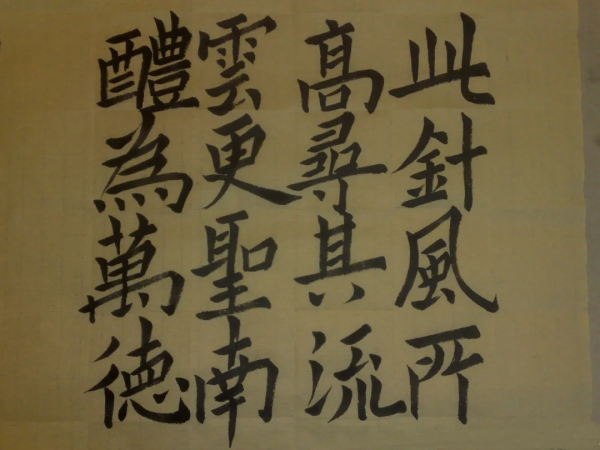 此針風所
髙尋其流
雲更聖南
醴為萬德